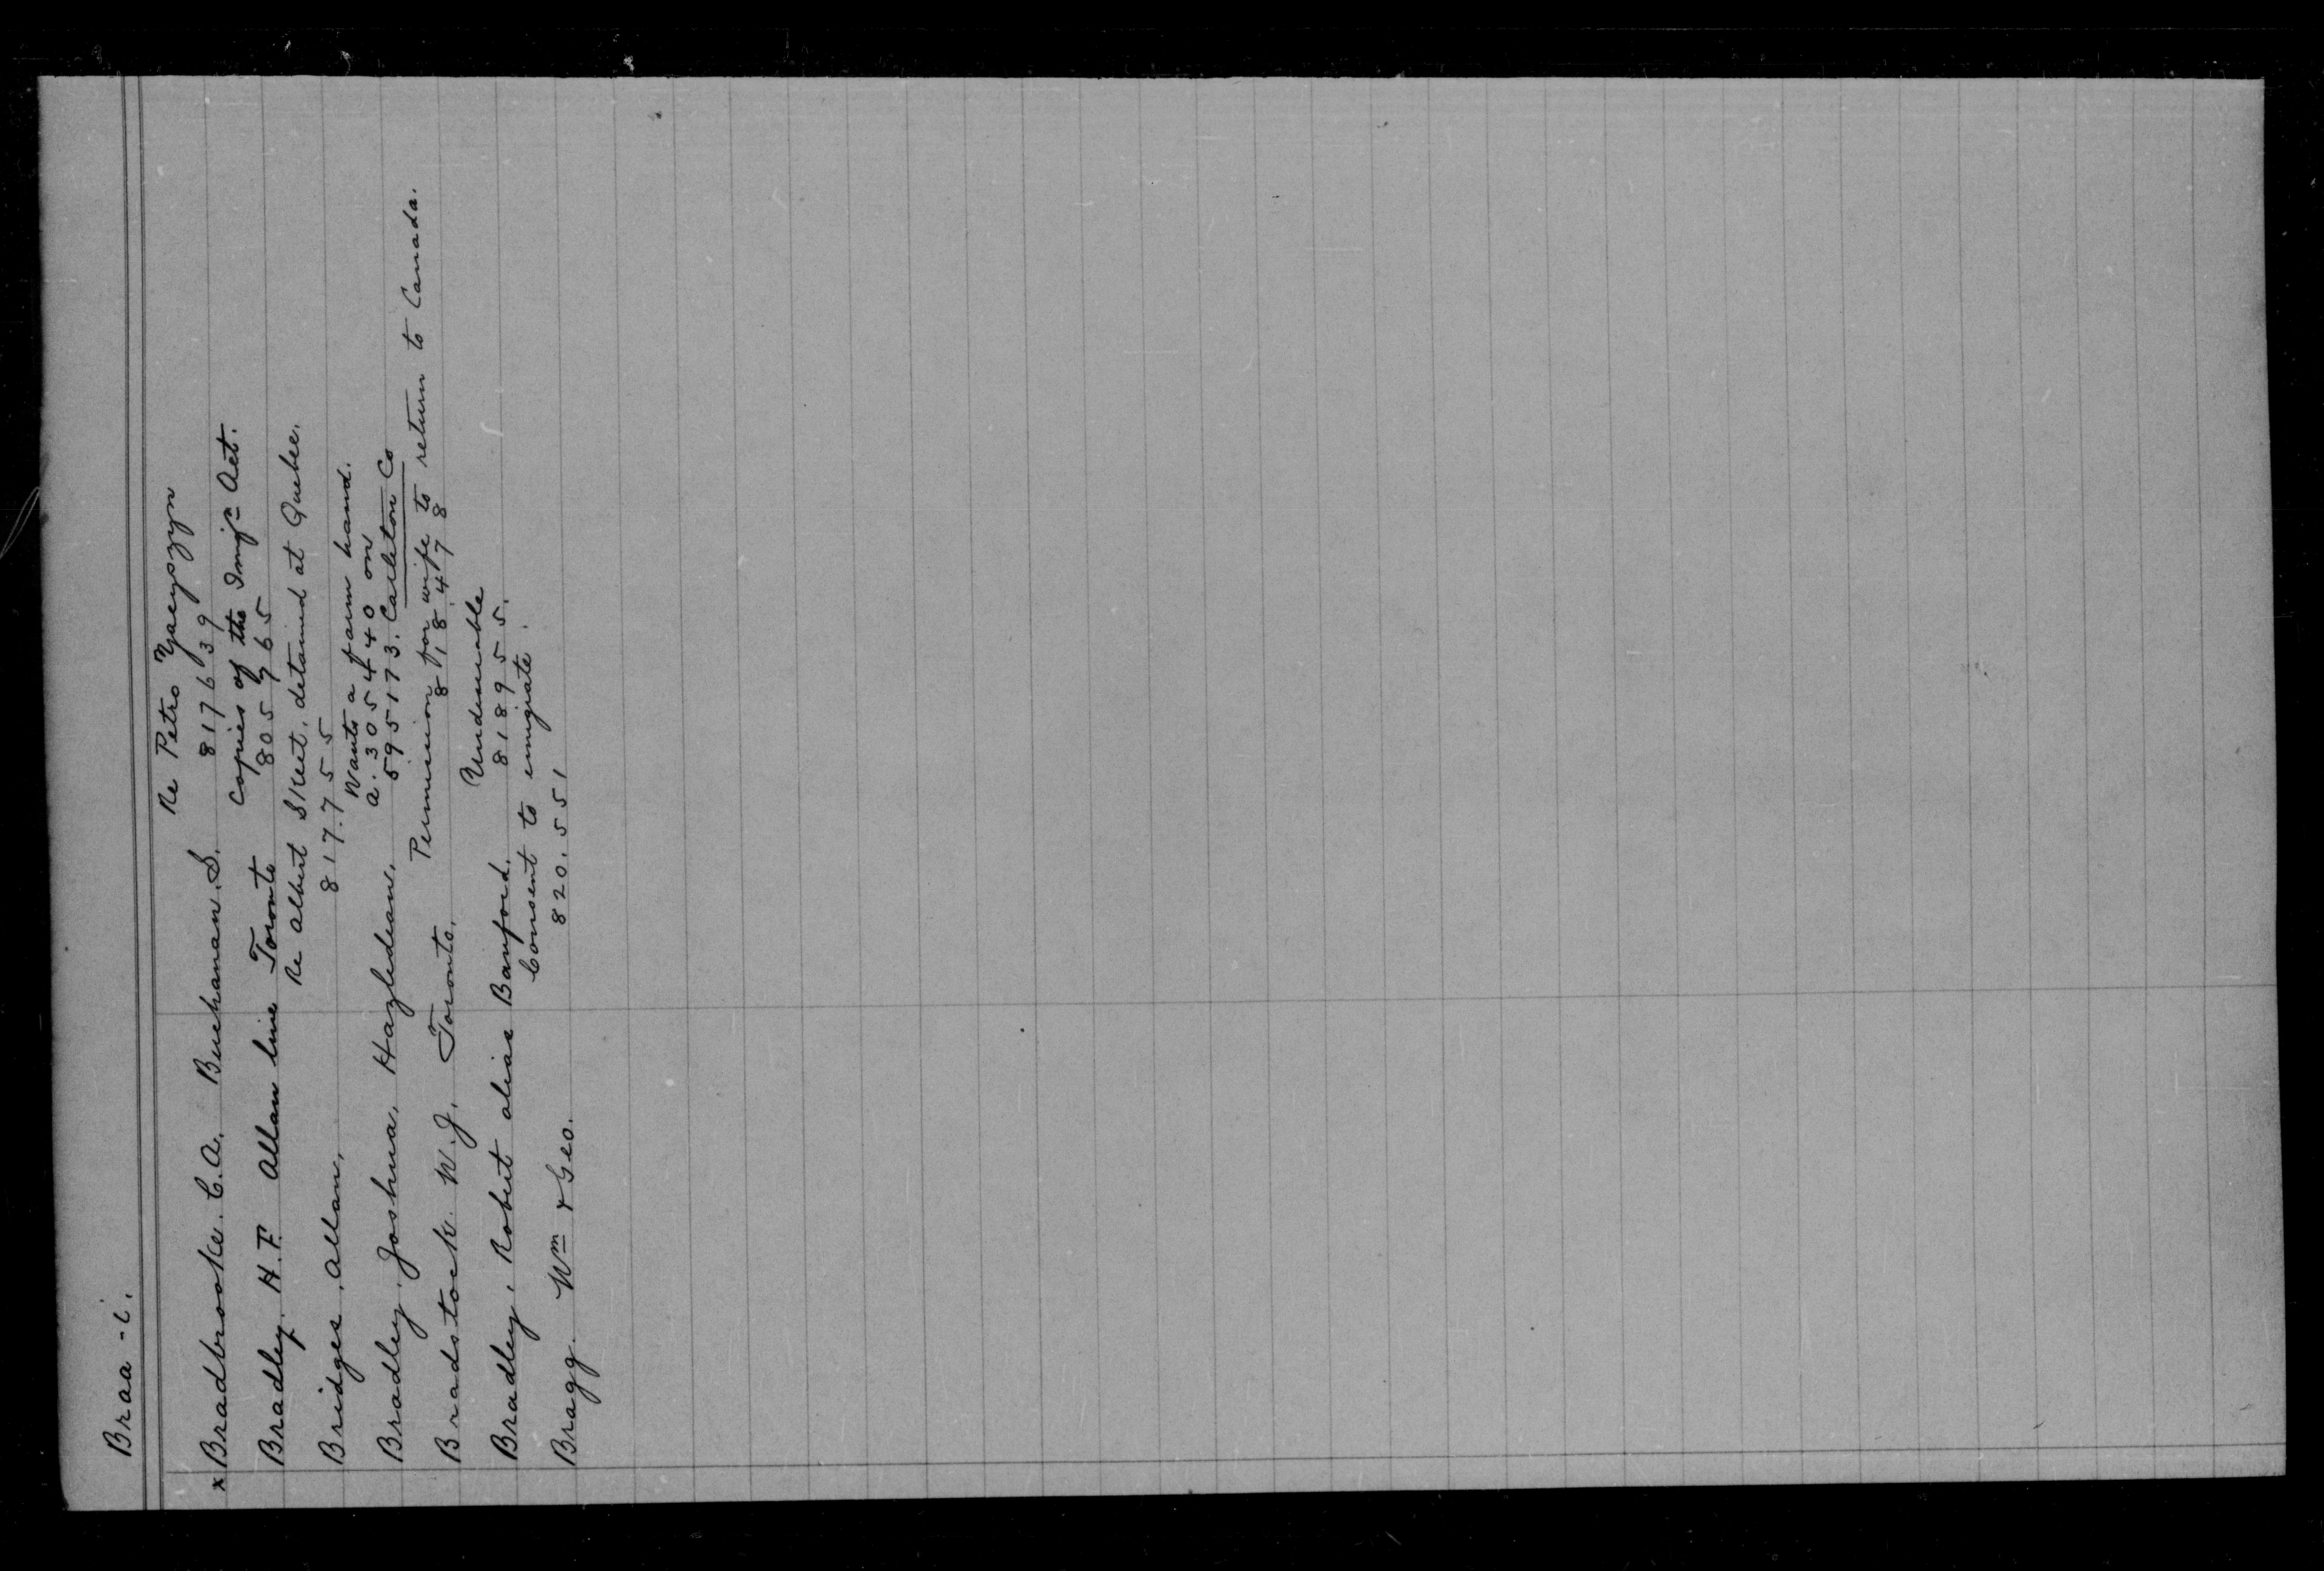 Braa - i.
Re Petro Yacyszyn
x Bradbrooke. C.A. Buchanan. S. 817639
copies of the Immig<sup>n</sup> Act.
Bradley. H.F. Allan line Toronto 805965
Re Albert Skeet, detained at Quebec.
Bridges. Allan. 817.755
Wants a farm hand.
a. 305440 on
Bradley. Joshua. Hazledean. 595173. Carleton Co
Permission for wife to return to Canada.
Bradstock. W.J. Toronto. 818478
Undesirable
Bradley, Robert alias Banford. 818955.
Consent to emigrate.
Bragg. W<sup>m</sup> & Geo. 820.551